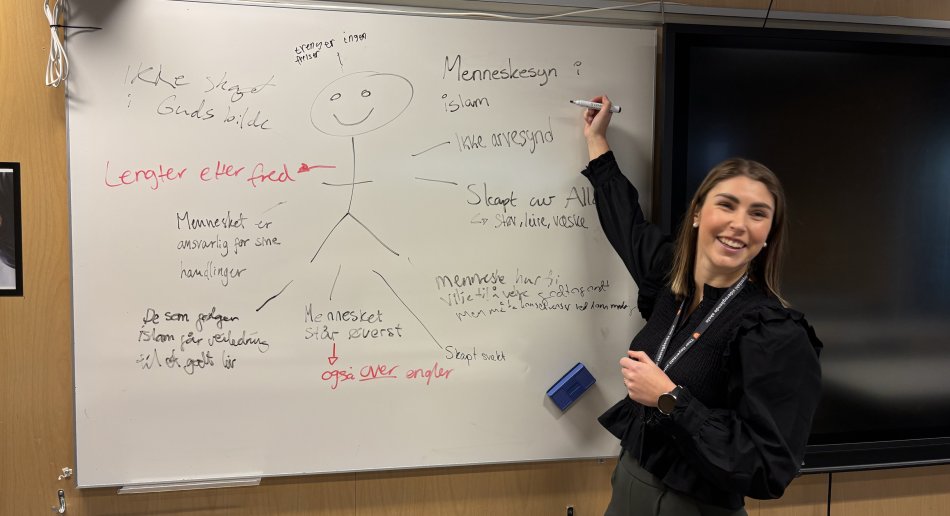 trenger ingen
frelser
Ikke skapt
i Guds bilde
Menneskesyn i
islam
Ikke arvesynd
Lengter etter fred
Skapt av All
↳ Støv, leire, væske
Mennesket er
ansvarlig for sine
handlinger
menneske har fri
vilje til å velge godt og ondt
men må ta konsekvenser ved
De som følger
islam får veiledning
til et godt liv
Mennesket
står øverst
også over engler
Skapt svakt